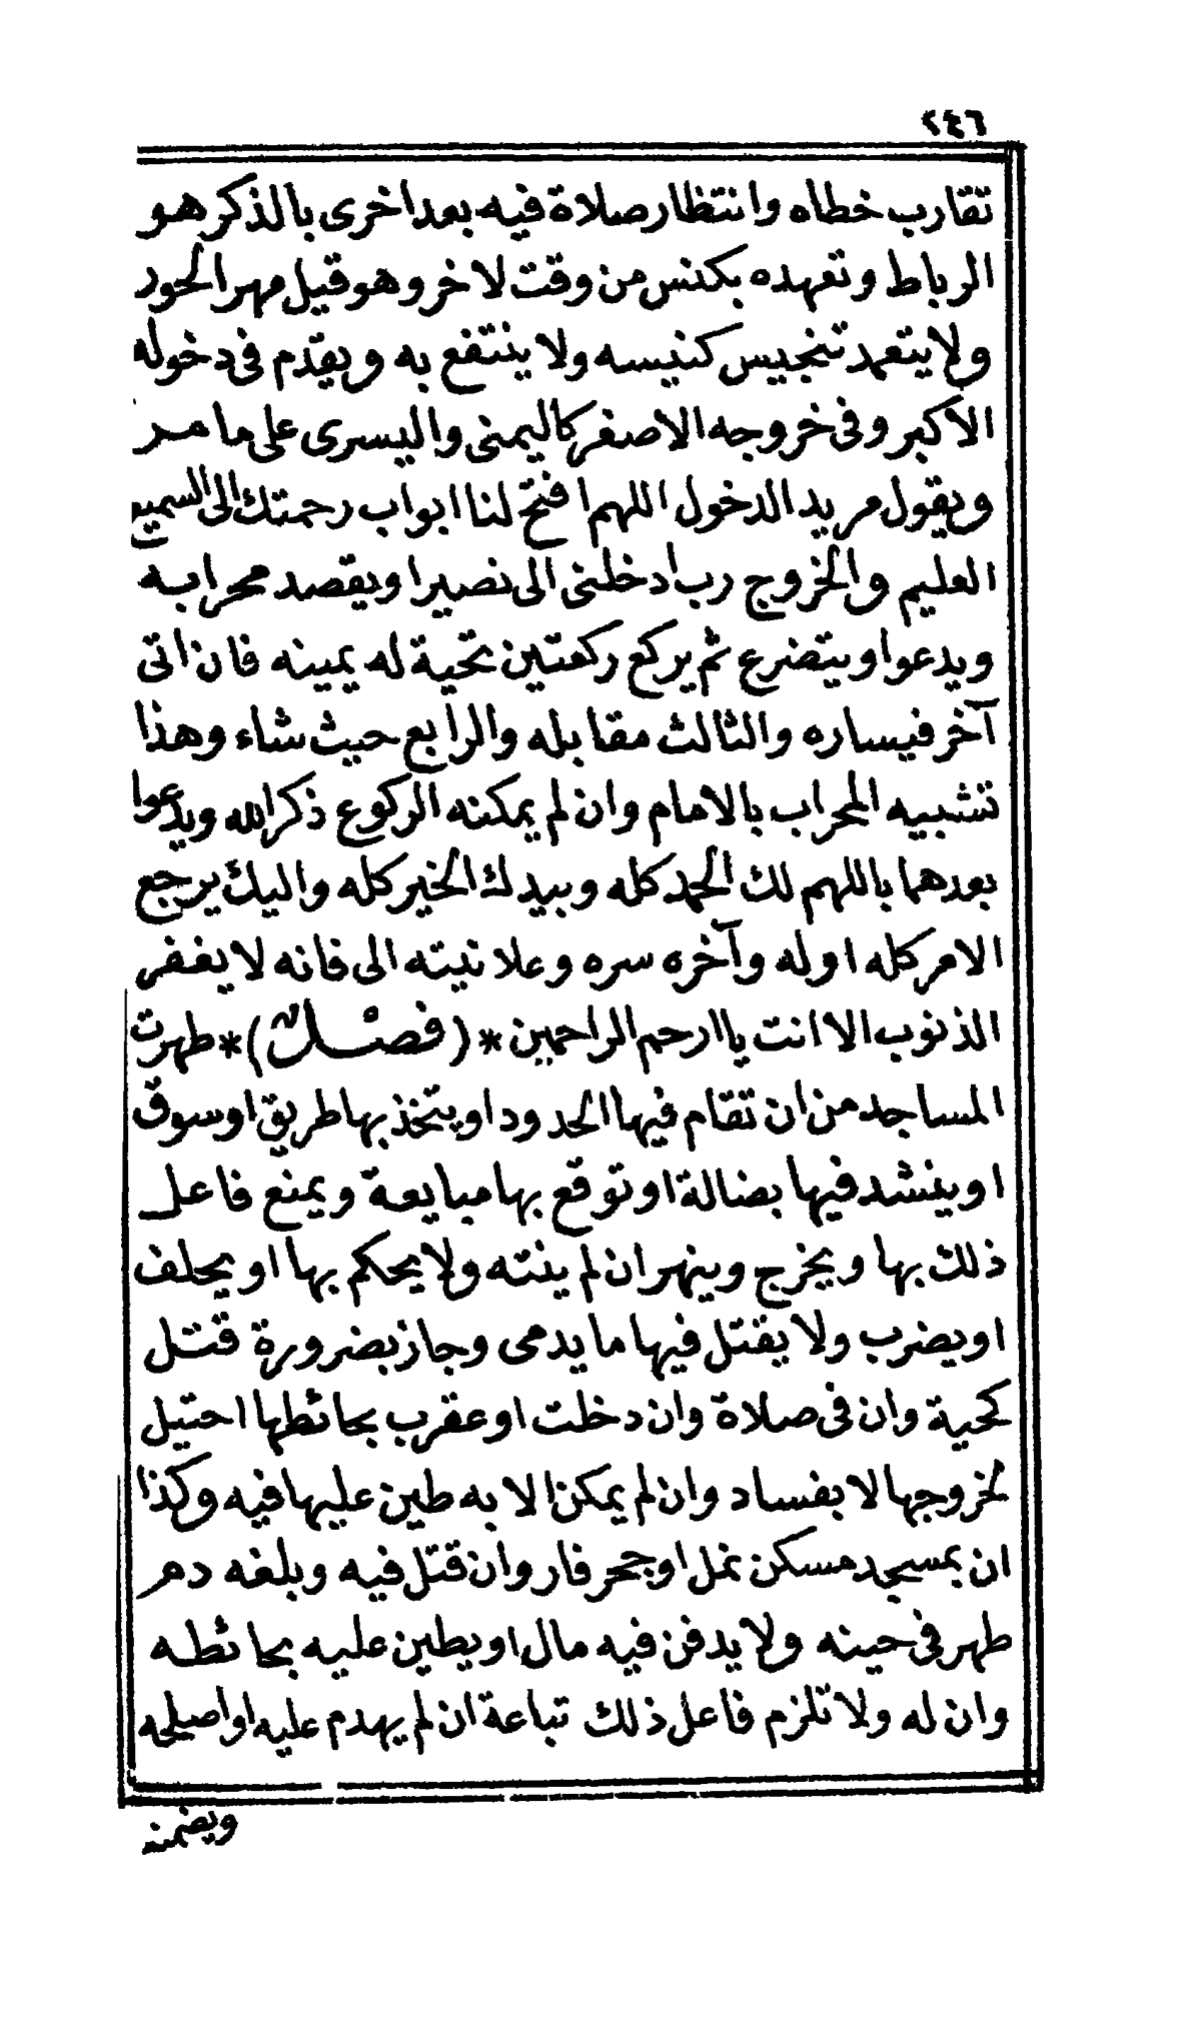 ٢٤٦
تقارب خطاه وانتظار صلاة فيه بعد اخرى بالذكر هو
الرباط وتعهده بكنس من وقت لاخر وهو قيل مهر الحور
ولا يتعمد تنجيس كنيسه ولا ينتفع به ويقدم فى دخوله
الاكبر وفى خروجه الاصغر كاليمنى واليسرى على ما مر
ويقول مريد الدخول اللهم افتح لنا ابواب رحمتك الى السميع
العليم والخروج رب ادخلنى الى نصيرا ويقصد محرابه
ويدعوا ويتضرع ثم يركع ركعتين تحية له يمينه فان اتى
آخر فيساره والثالث مقابله والرابع حيث شاء وهذا
تشبيه المحراب بالامام وان لم يمكنه الركوع ذكر الله ويدعوا
بعدهما باللهم لك الحمد كله وبيدك الخير كله واليك يرجع
الامر كله اوله وآخره سره وعلانيته الى فانه لا يغفر
الذنوب الا انت يا ارحم الراحمين *(فصل)* طهرت
المساجد من ان تقام فيها الحدود او يتخذ بها طريق او سوق
او ينشد فيها بضالة او توقع بها مبايعة ويمنع فاعل
ذلك بها ويخرج وينهر ان لم ينته ولا يحكم بها او يحلف
او يضرب ولا يقتل فيها ما يدمى وجاز بضرورة قتل
كحية وان فى صلاة وان دخلت او عقرب بحائطها احتيل
لخروجها لا بفساد وان لم يمكن الا به طين عليها فيه وكذا
ان بمسجد مسكن نمل او جحر فار وان قتل فيه وبلغه دم
طهر فى حينه ولا يدفن فيه مال او يطين عليه بحائطه
وان له ولا تلزم فاعل ذلك تباعة ان لم يهدم عليه او اصلحه
ويضمنه